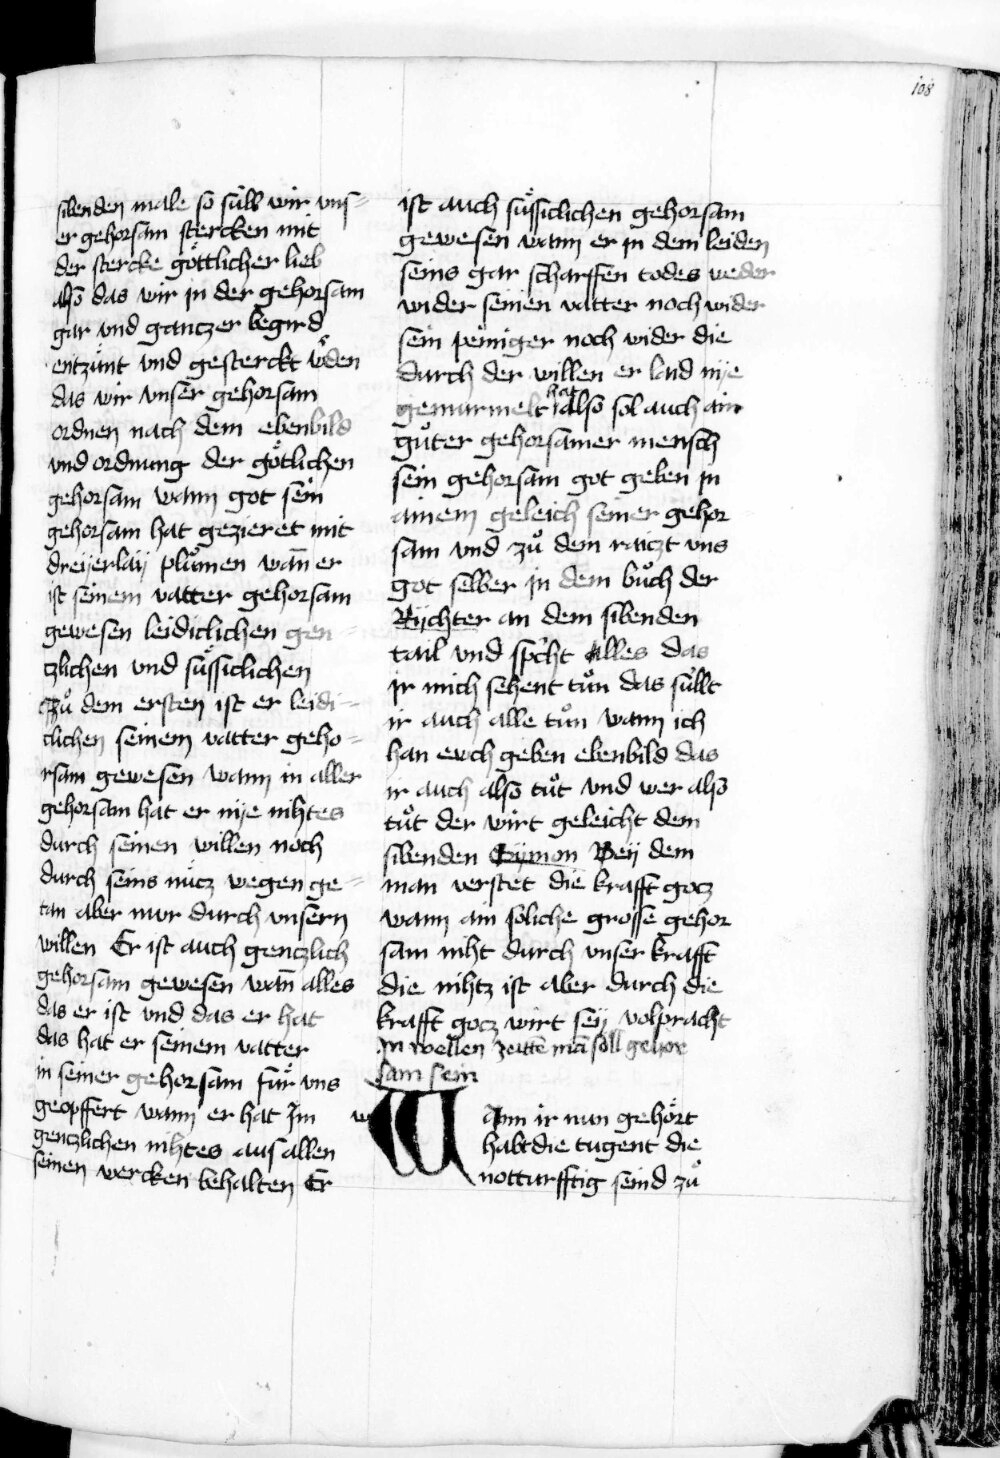 108
sibenden male so süll wir vns=
er gehorsam stercken mit
der stercke göttlicher lieb
also das wir jn der gehorsam
gar vnd gantzer begird
entzünt vnd gesterckt wͤden
das wir vnser gehorsam
ordnen nach dem ebenbild
vnd ordnung der götlichen
gehorsam wann got sein
gehorsam hat gezieret mit
dreÿerlaÿ plůmen wan̄ er
ist seinem vatter gehorsam
gewesen leidiclichen gen=
czlichen vnd süssiclichen
czů dem ersten ist er leidi=
clichen seinem vatter geho=
rsam gewesen wann in aller
gehorsam hat er nÿe nihtes
durch seinen willen noch
durch seins nücz wegen ge=
tan aber nwr durch vnsern
willen Er ist auch genczlich
gehorsam gewesen wan̄ alles
das er ist vnd das er hat
das hat er seinem vatter
in seiner gehorsam für vns
geopffert wann er hat Jm
genczlichen nihtes aus allen
seinen wercken behalten Er
ist auch süssiclichen gehorsam
gewesen wann er jn dem leiden
seins gar scharffen todes weder
wider seinen vatter noch wider
sein peiniger noch wider die
durch der willen er laid nÿe
gemurmelt hat also sol auch ain
gůter gehorsamer mensch
sein gehorsam got geben jn
ainem geleich seiner gehor
sam vnd zů dem raiczt vns
got selber jn dem bůch der
Rÿchter an dem sibenden
tail vnd sp̓cht Alles das
jr mich sehent tůn das süllt
ir auch alle tůn wann ich
han ewch geben ebenbild das
ir auch also tůt vnd wer also
tůt der wirt geleicht dem
sibenden Eÿmon Beÿ dem
man verstet die krafft gocz
wann ain soliche grosse gehor
sam niht durch vnser krafft
die nihtz ist aber durch die
krafft gocz wirt seÿ volpracht
Jn wellen zeittē mā söll gehor
sam sein
w
Ann ir nun gehört
habt die tugent die
notturfftig seind zů